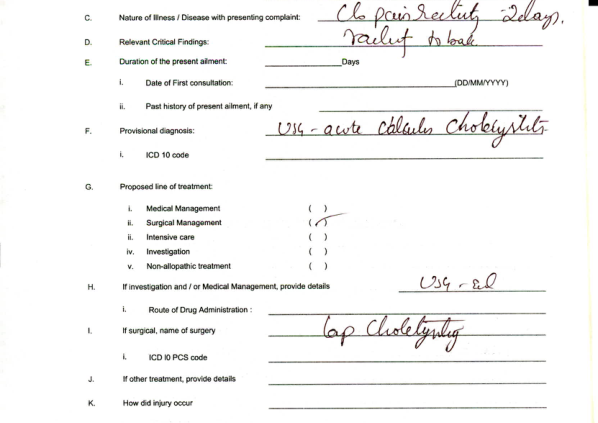 C. Nature of Illness / Disease with presenting complaint: C/o pain - 2 days.
D. Relevant Critical Findings: to back
E. Duration of the present ailment: ____ Days
i. Date of First consultation: ____ (DD/MM/YYYY)
ii. Past history of present ailment, if any
F. Provisional diagnosis: USG - acute calculus Cholecystitis
i. ICD 10 code
G. Proposed line of treatment:
i. Medical Management ( )
ii. Surgical Management (✓)
ii. Intensive care ( )
iv. Investigation ( )
v. Non-allopathic treatment ( )
H. If investigation and / or Medical Management, provide details USG -
i. Route of Drug Administration :
I. If surgical, name of surgery Lap
i. ICD I0 PCS code
J. If other treatment, provide details
K. How did injury occur